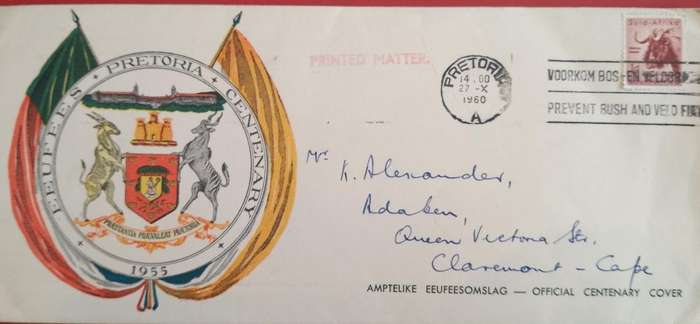 EEUFEES • PRETORIA • CENTENARY
PRÆSTANTIA PRÆVALEAT PRÆTORIA
1955
PRINTED MATTER.
PRETORIA
14.00
27 - X
1960
A
VOORKOM BOS- EN VELDBRA
PREVENT BUSH AND VELD FIR
Suid-Afrika
Mr K. Alexander,
Queen Victoria Str.
Claremont - Cape
AMPTELIKE EEUFEESOMSLAG — OFFICIAL CENTENARY COVER